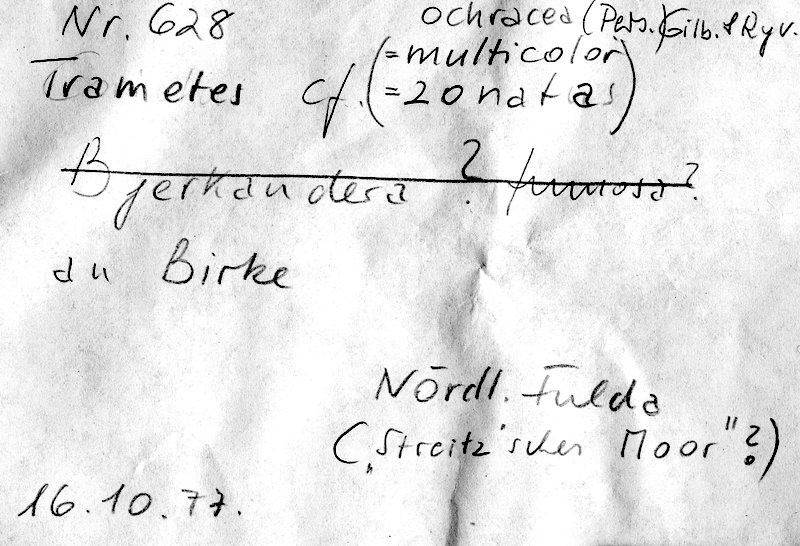 Nr. 628
ochracea (Pers.) Gilb. & Ryv.
Trametes cf. (= multicolor)
(= zonatas)
Bjerkandera ? fumosa ?
an Birke
Nördl. Fulda
(„Streitz'sches Moor" ?)
16.10.77.